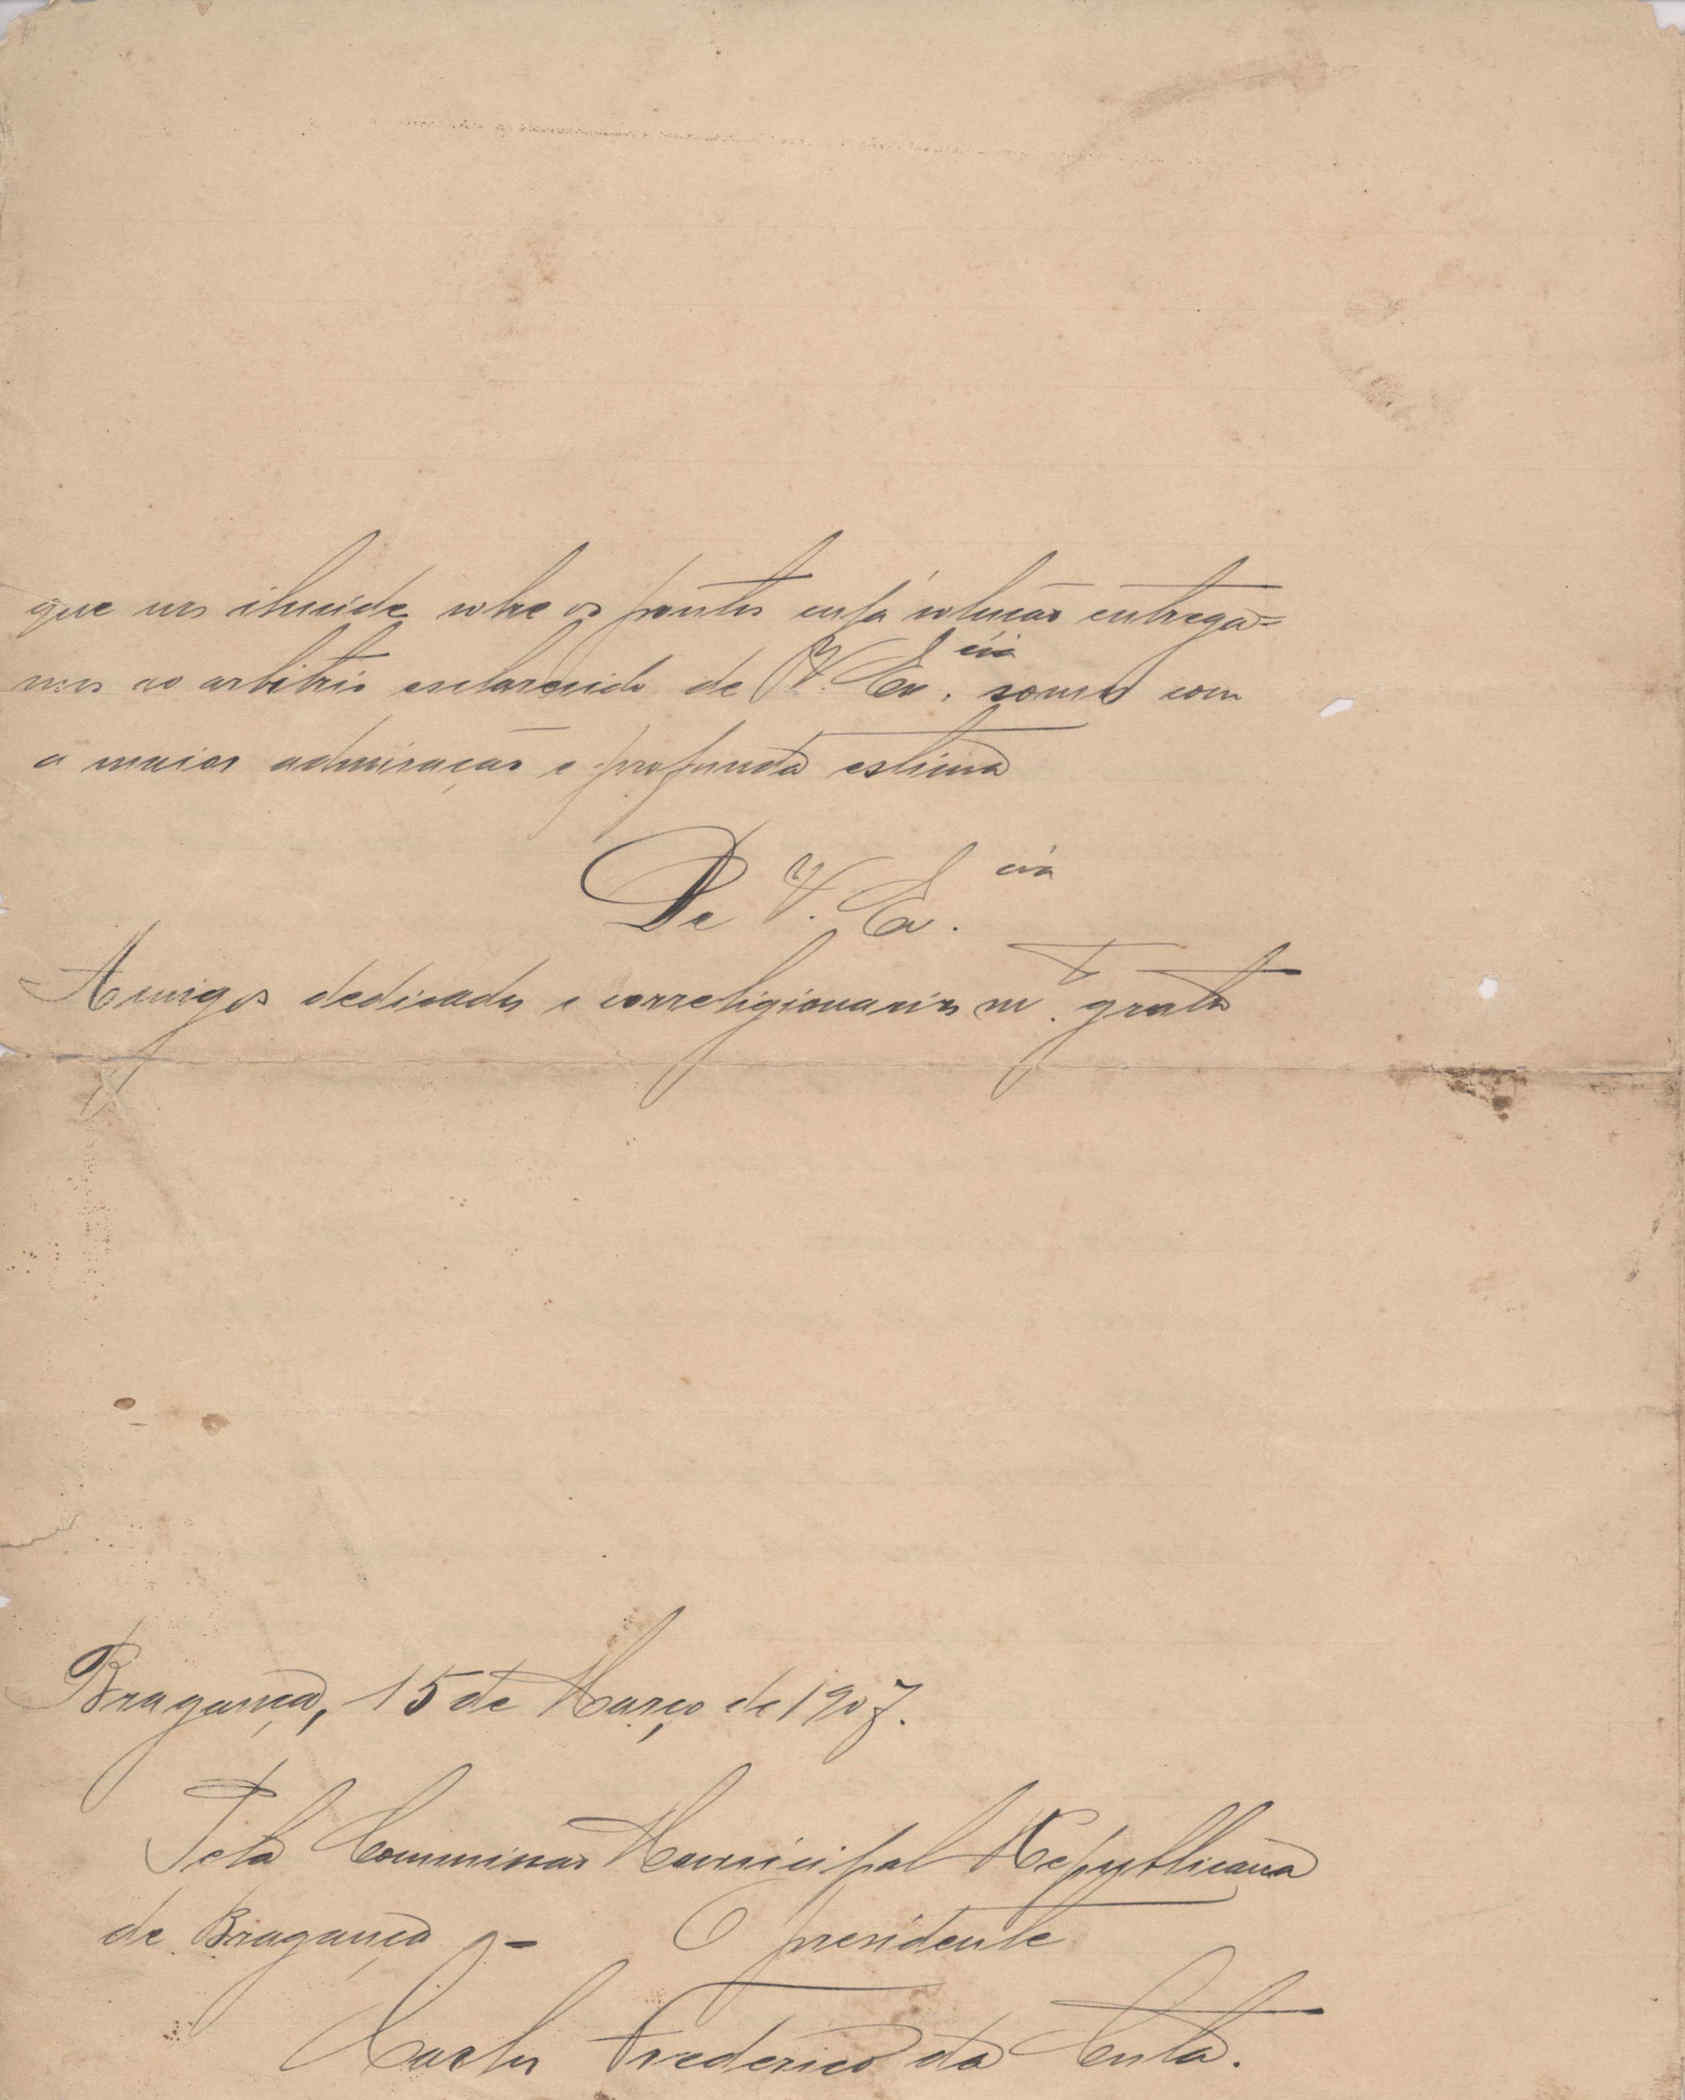 que nos elucide sobre os pontos cuja solução entrega=
mos ao arbitrio esclarecido de V. Ex.cia somos com
a maior admiração e profunda estima
De V. Ex.cia
Amigos dedicados e correligionarios m.to gratos
Bragança, 15 de Março de 1907.
Pela Commissão Municipal Republicana
de Bragança - O presidente
Carlos Frederico da Costa.